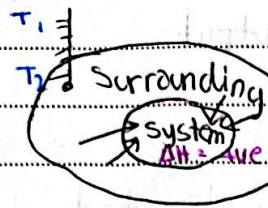 T₁
T₂
Surrounding
System
ΔH = +ve